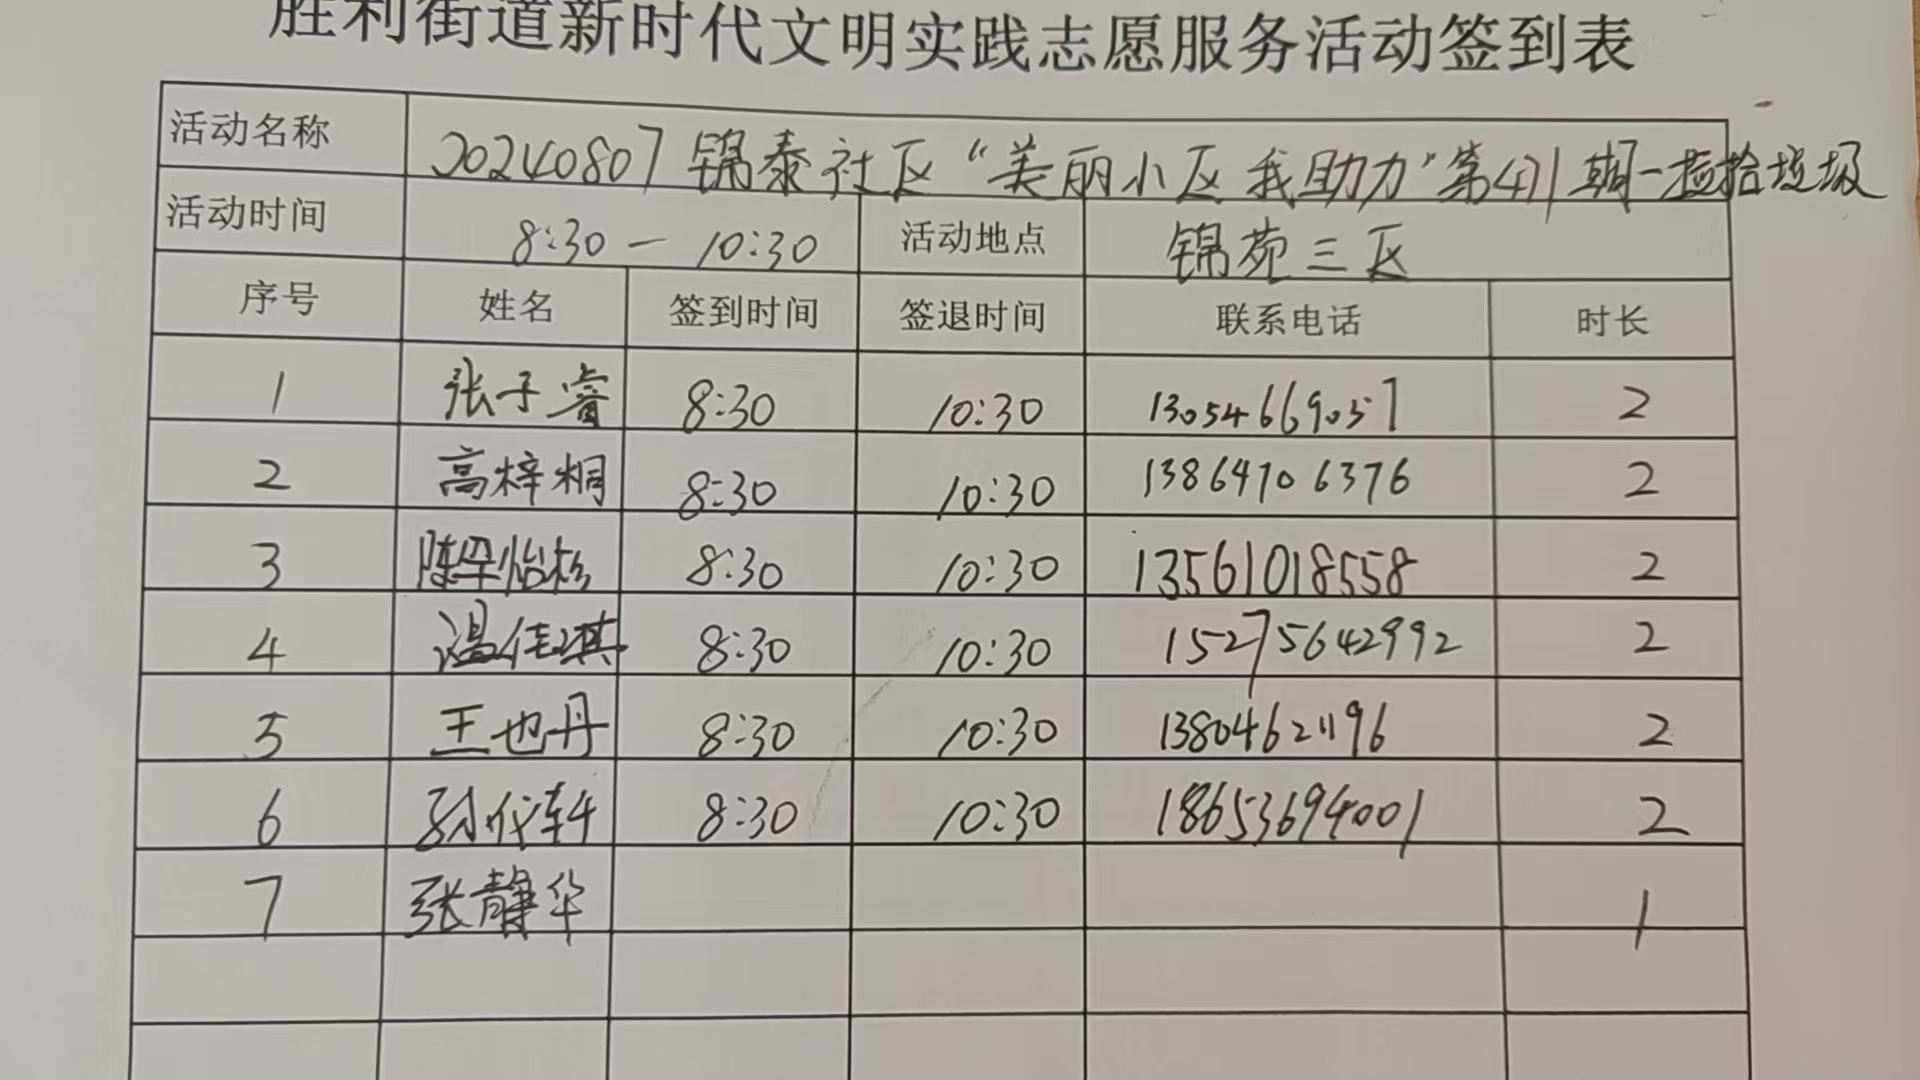 胜利街道新时代文明实践志愿服务活动签到表
活动名称 20240807 锦泰社区“美丽小区 我助力”第471期-捡拾垃圾
活动时间 8:30 — 10:30 活动地点 锦苑三区
序号 姓名 签到时间 签退时间 联系电话 时长
1 张子睿 8:30 10:30 13054669057 2
2 高梓桐 8:30 10:30 13864706376 2
3 陈 怡杉 8:30 10:30 13561018558 2
4 温佳琪 8:30 10:30 15275642992 2
5 王也丹 8:30 10:30 13804621196 2
6 孙 轩 8:30 10:30 18653694001 2
7 张静华 1